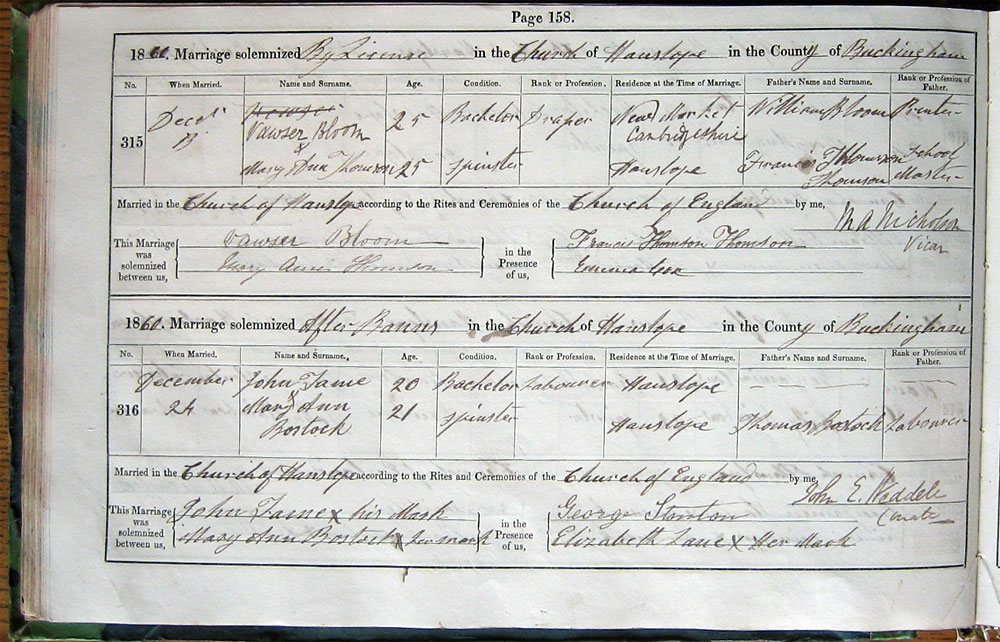 Page 158.
1860. Marriage solemnized By License in the Church of Hanslope in the County of Buckingham
No. When Married. Name and Surname. Age. Condition. Rank or Profession. Residence at the Time of Marriage. Father's Name and Surname. Rank or Profession of Father.
315 Decr Vawser Bloom 25 Bachelor Draper New Market Cambridgeshire William Bloom Printer
& Mary Ann Thomson 25 Spinster Hanslope Francis Thomson Thomson School Master
Married in the Church of Hanslope according to the Rites and Ceremonies of the Church of England by me,
M A Nicholson
Vicar
This Marriage was solemnized between us, Vawser Bloom
Mary Ann Thomson
in the Presence of us, Francis Thomson Thomson
Emma Cox
1860. Marriage solemnized After Banns in the Church of Hanslope in the County of Buckingham
No. When Married. Name and Surname. Age. Condition. Rank or Profession. Residence at the Time of Marriage. Father's Name and Surname. Rank or Profession of Father.
316 December 24 John Tame 20 Bachelor Labourer Hanslope
& Mary Ann Bostock 21 Spinster Hanslope Thomas Bostock Labourer
Married in the Church of Hanslope according to the Rites and Ceremonies of the Church of England by me,
John E.
Curate
This Marriage was solemnized between us, John Tame x his Mark
Mary Ann Bostock x her mark
in the Presence of us, George Stanton
Elizabeth Lane x Her Mark